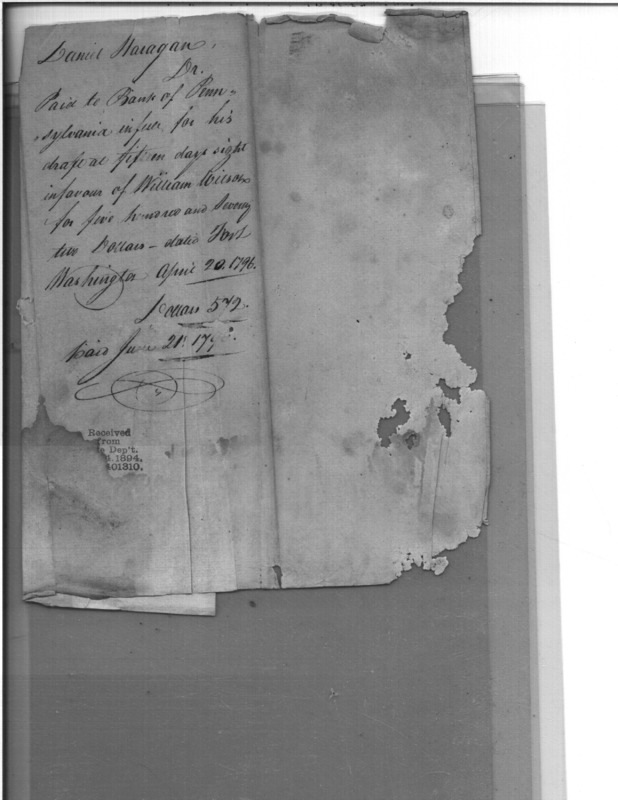 Daniel Haragan,
Dr.
Paid to Bank of Penn-
sylvania infull for his
draft at fifteen days sight
infavour of William Wilson
for five hundred and Seventy
two Dollars – dated Fort
Washington April 20. 1796.
Dollars 572.
Paid June 21st 1796.
Received
from
e Dep't.
1894.
401310.